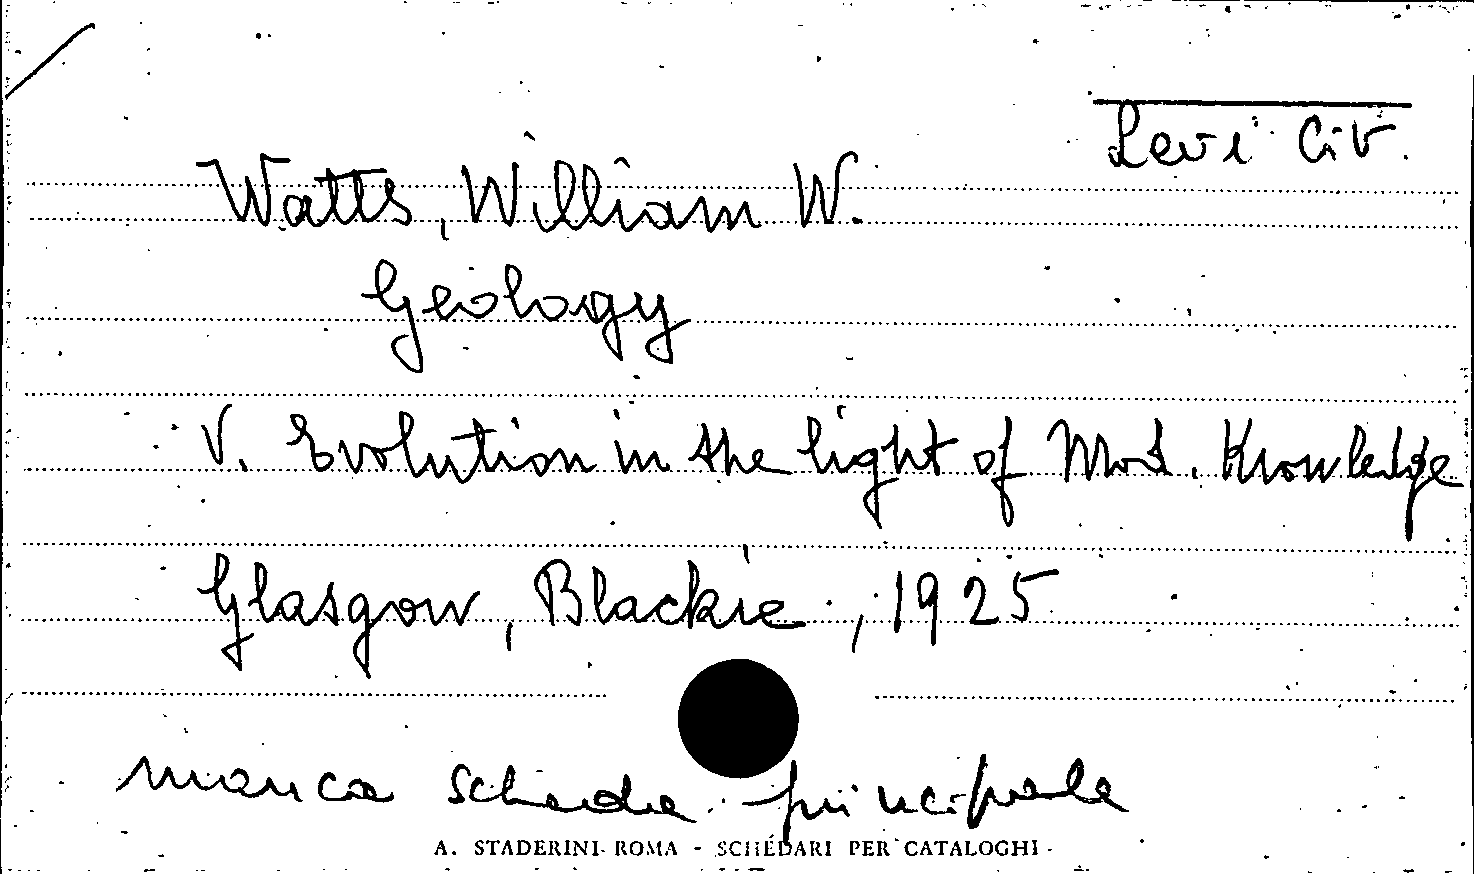 Levi Civ.
Watts, William W.
Geology
V. Evolution in the light of Mod. Knowledge
Glasgow, Blackie, 1925
manca scheda principale
A. STADERINI - ROMA - SCHEDARI PER CATALOGHI -